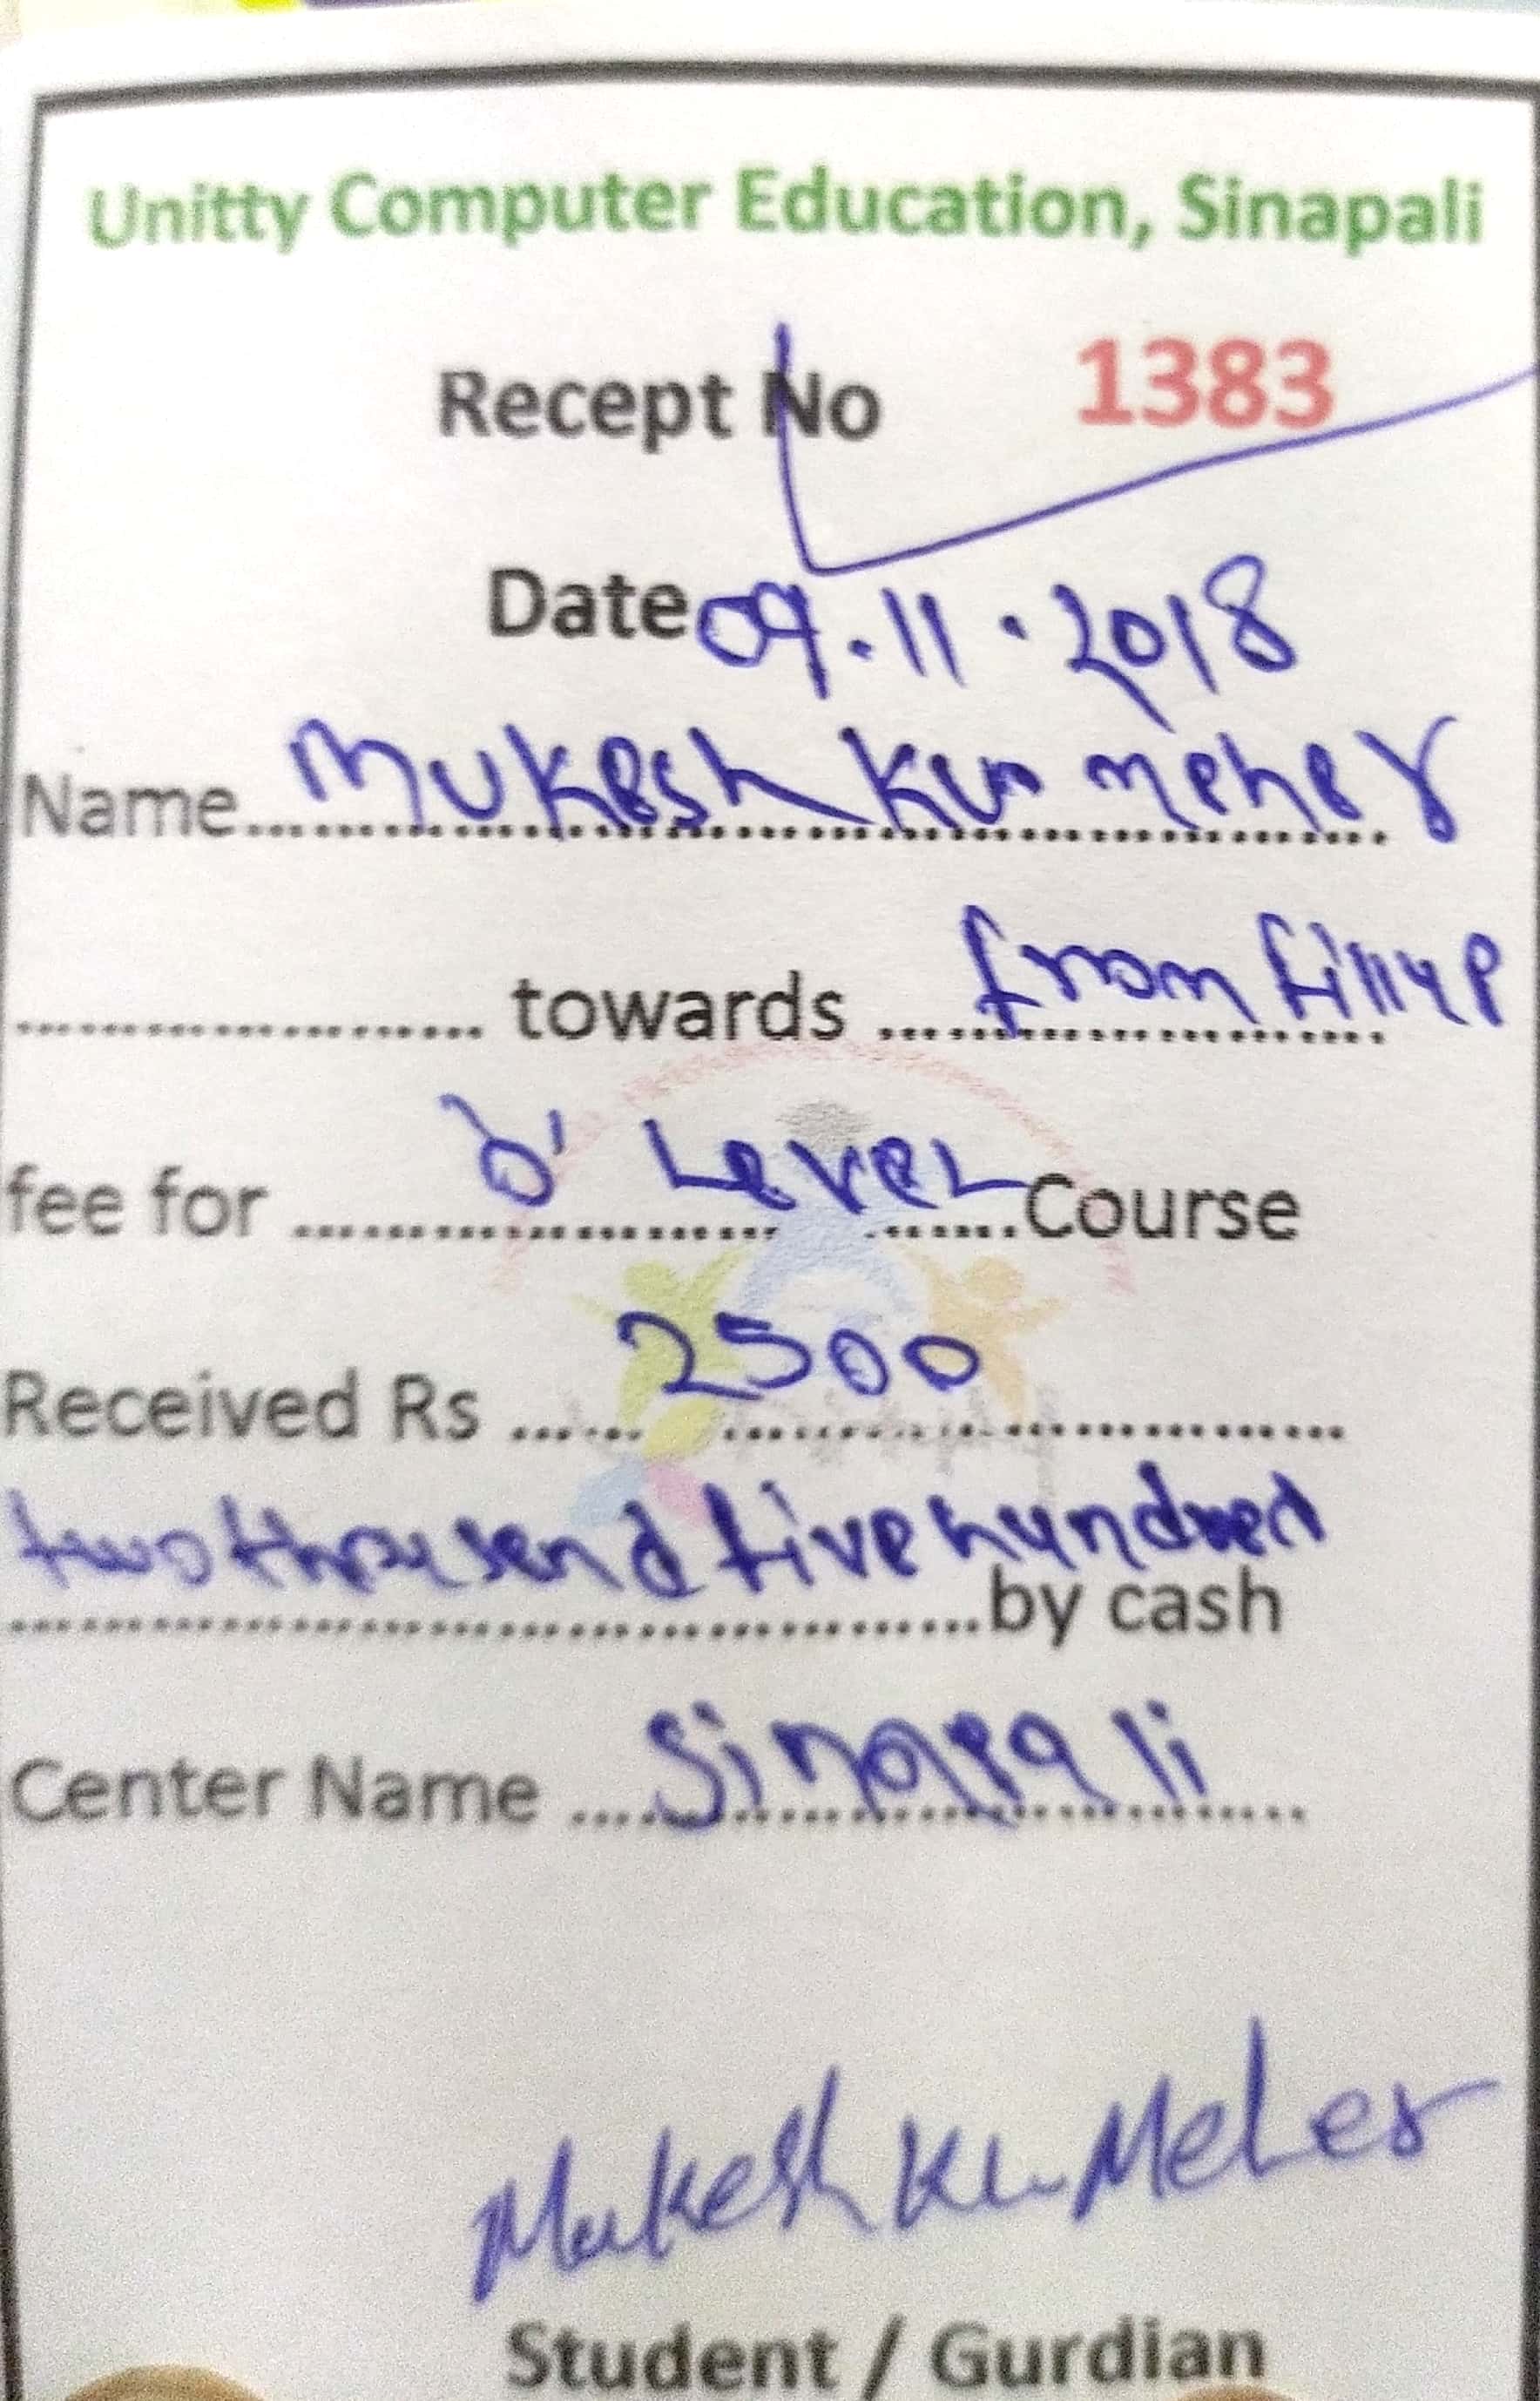 Unitty Computer Education, Sinapali
Recept No 1383
Date 09.11.2018
Name Mukesh Ku Meher
towards from fillup
fee for 'O' Level Course
Received Rs 2500
two thousend five hundred
by cash
Center Name Sinapali
Mukesh Ku Meher
Student / Gurdian